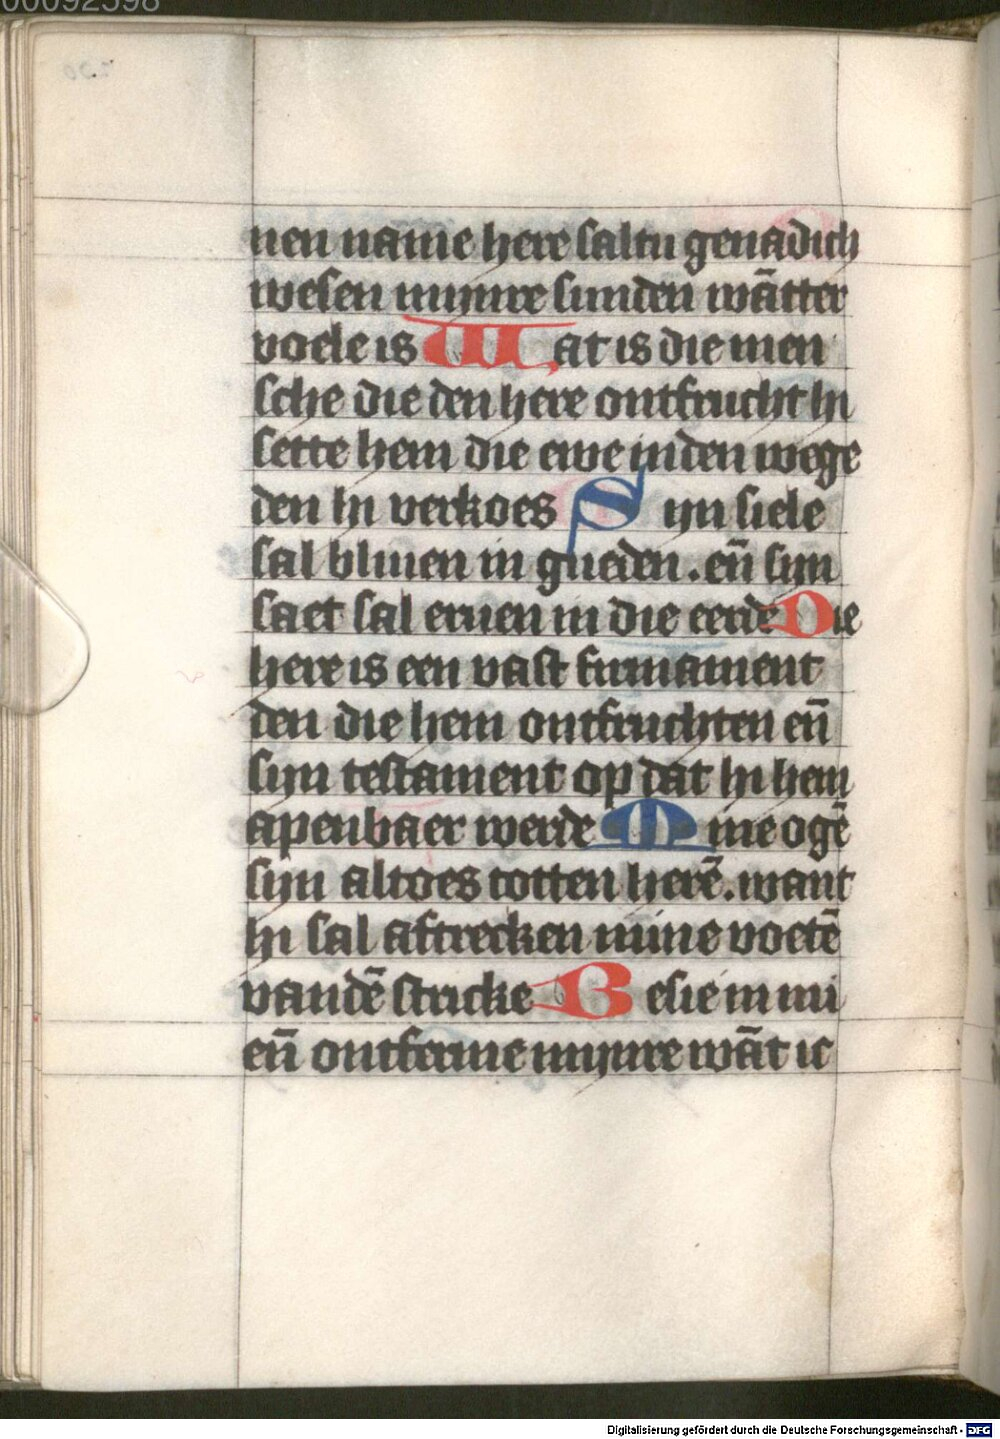 00092598
nen name here saltu genadich
wesen mynre sunden wāt ter
voele is Wat is die men
sche die den here ontfrucht hi
sette hem die ewe inden wege
den hi verkoes Sijn siele
sal bliuen in gueden . eñ sijn
saet sal eruen in die eerde Die
here is een vast furmament
den die hem ontfruchten eñ
sijn testament op dat hi hem
apenbaer werde Mine ogē
sijn altoes totten herē . want
hi sal aftrecken mine voetē
vandē stricke Besie in mi
eñ ontferme mynre wāt ic
Digitalisierung gefördert durch die Deutsche Forschungsgemeinschaft - DFG